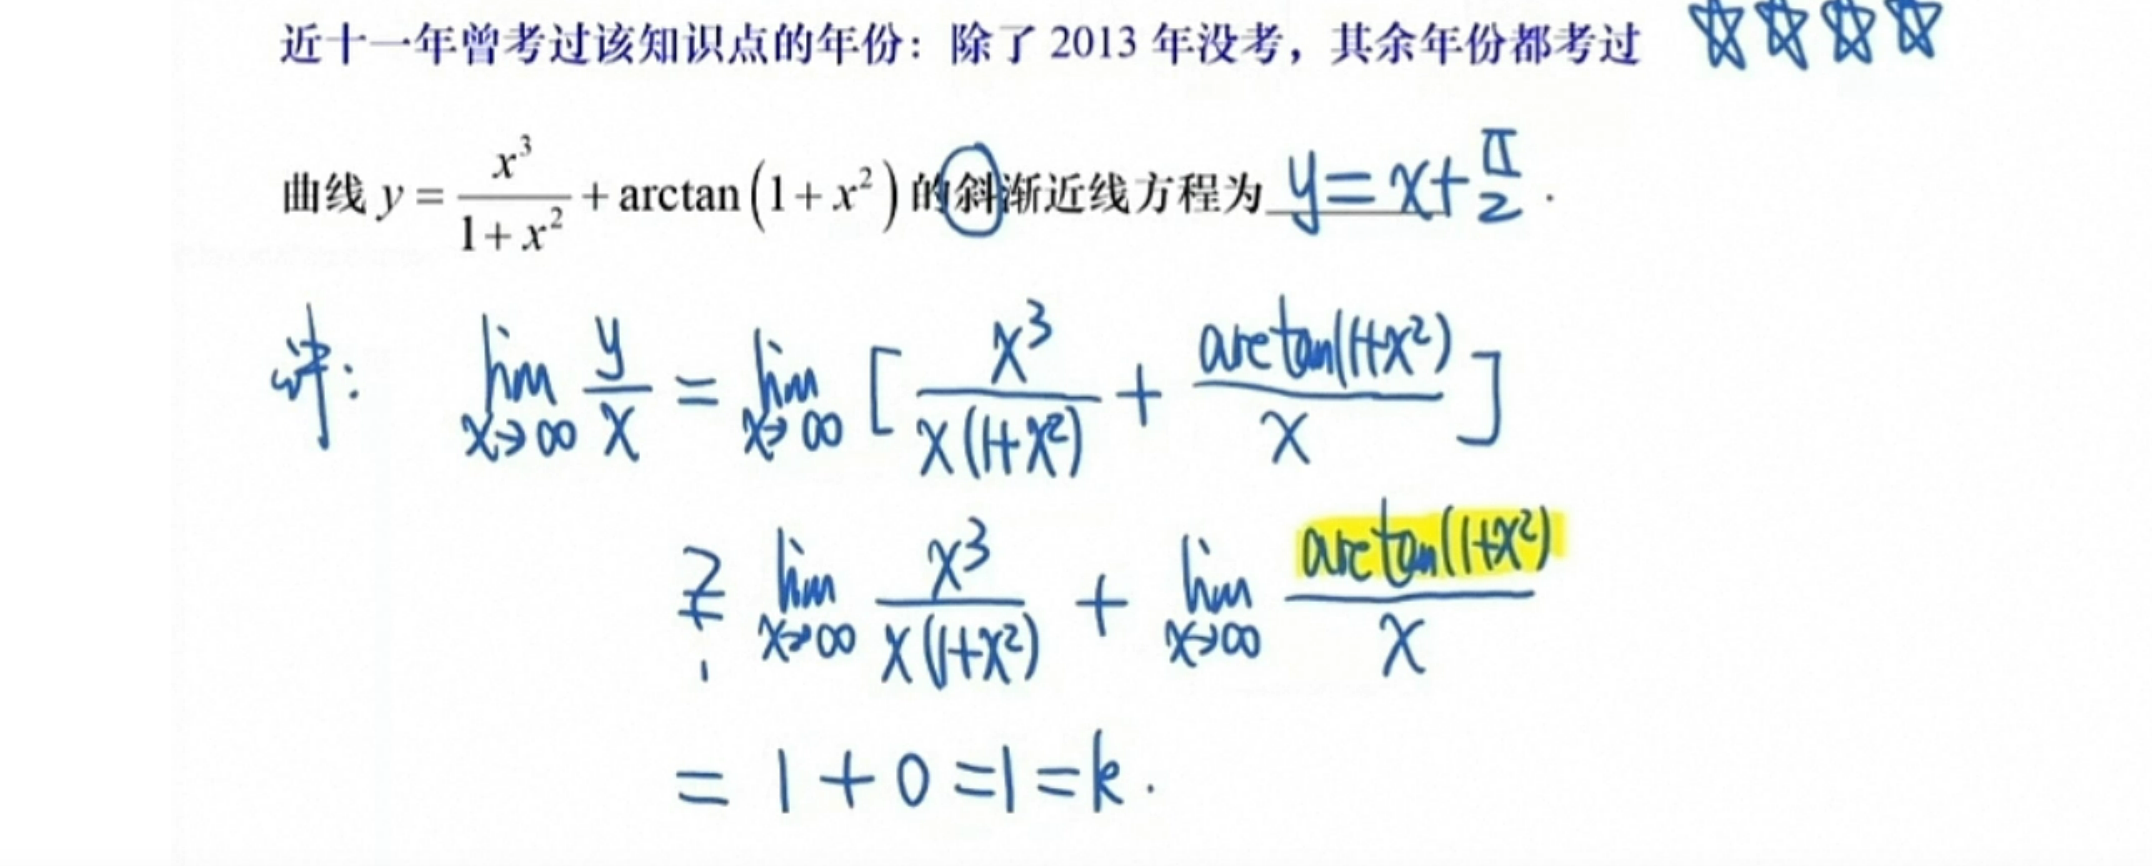 近十一年曾考过该知识点的年份：除了 2013 年没考，其余年份都考过 ☆☆☆☆
曲线 y = x³/(1+x²) + arctan(1+x²) 的斜渐近线方程为 y=x+π/2 .
lim_{x→∞} y/x = lim_{x→∞} [ x³/(x(1+x²)) + arctan(1+x²)/x ]
lim_{x→∞} x³/(x(1+x²)) + lim_{x→∞} arctan(1+x²)/x
= 1+0=1=k.